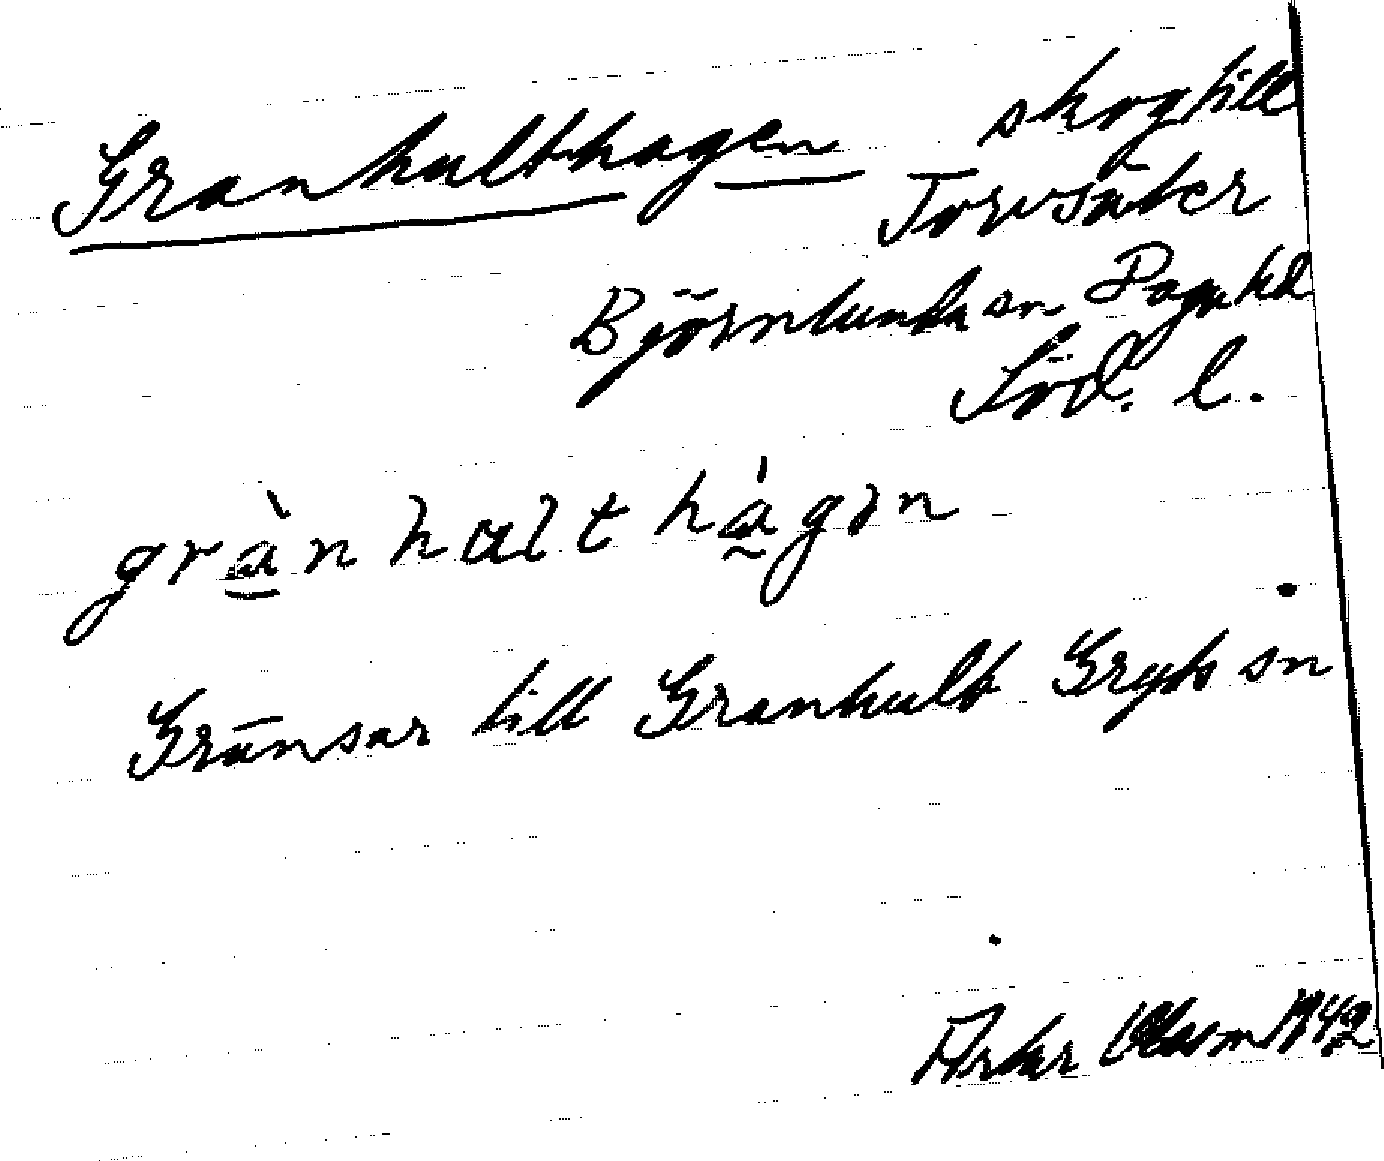 Granhulthagen skog till
Torvsäter
Björnlunda sn Daga hd
Söd. l.
grànhulthágən
Gränsar till Granhult Gryts sn
1942